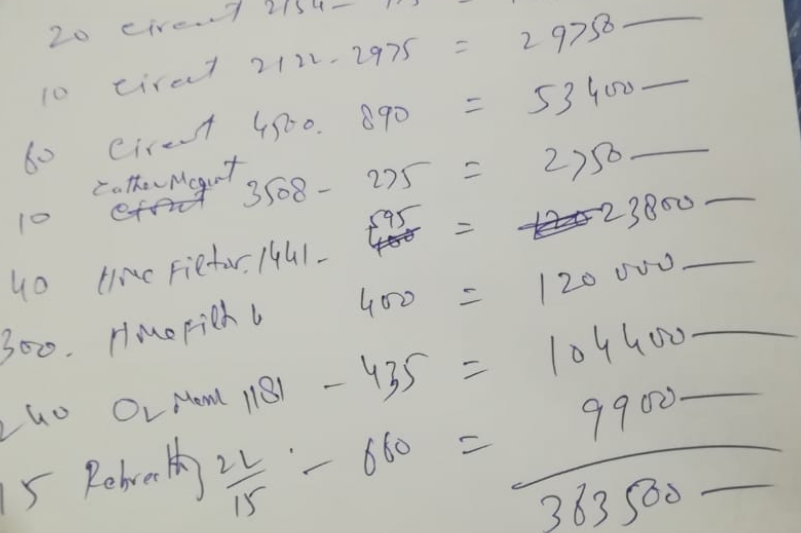 20 Circuit 2154 -
10 Circuit 2122 - 2975 = 29750
60 Circuit 4500. 890 = 53400
10 Cather Mount 3508 - 275 = 2750
40 Hme Filter. 1441 - 595 = 23800
300. Hme Filth 400 = 120000
240 O2 Mask 1181 - 435 = 104400
15 Rebreath 2L/15 - 660 = 9900
363500